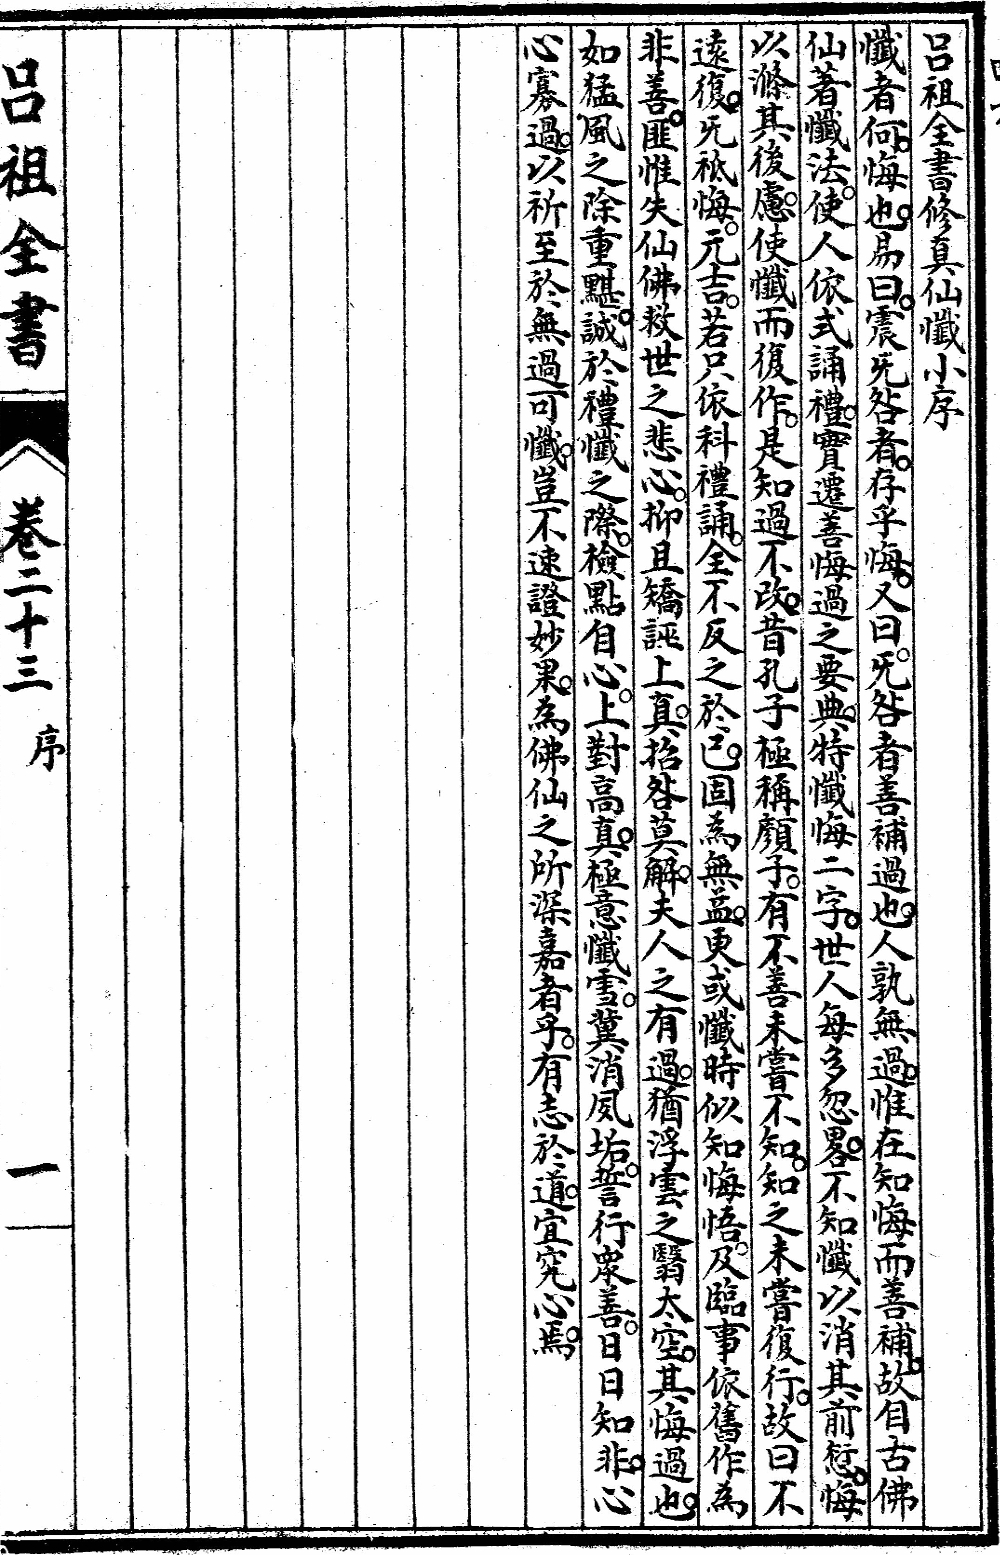 呂祖全書修真仙懺小序
懺者何。悔也。易曰。震旡咎者。存乎悔。又曰。旡咎者善補過也。人孰無過。惟在知悔而善補。故自古佛
仙著懺法。使人依式誦禮。實遷善悔過之要典。特懺悔二字。世人每多忽畧。不知懺以消其前愆。悔
以滌其後慮。使懺而復作。是知過不改。昔孔子極稱顏子。有不善未嘗不知。知之未嘗復行。故曰不
遠復。旡祗悔。元吉。若只依科禮誦。全不反之於己。固為無益。更或懺時似知悔悟。及臨事依舊作為
非善。匪惟失仙佛救世之悲心。抑且矯誣上真。招咎莫解。夫人之有過。猶浮雲之翳太空。其悔過也。
如猛風之除重黮。誠於禮懺之際。檢點自心。上對高真。極意懺雪。冀消夙垢。誓行眾善。日日知非。心
心寡過。以祈至於無過可懺。豈不速證妙果。為佛仙之所深嘉者乎。有志於道。宜究心焉。
呂祖全書
卷二十三
序
一